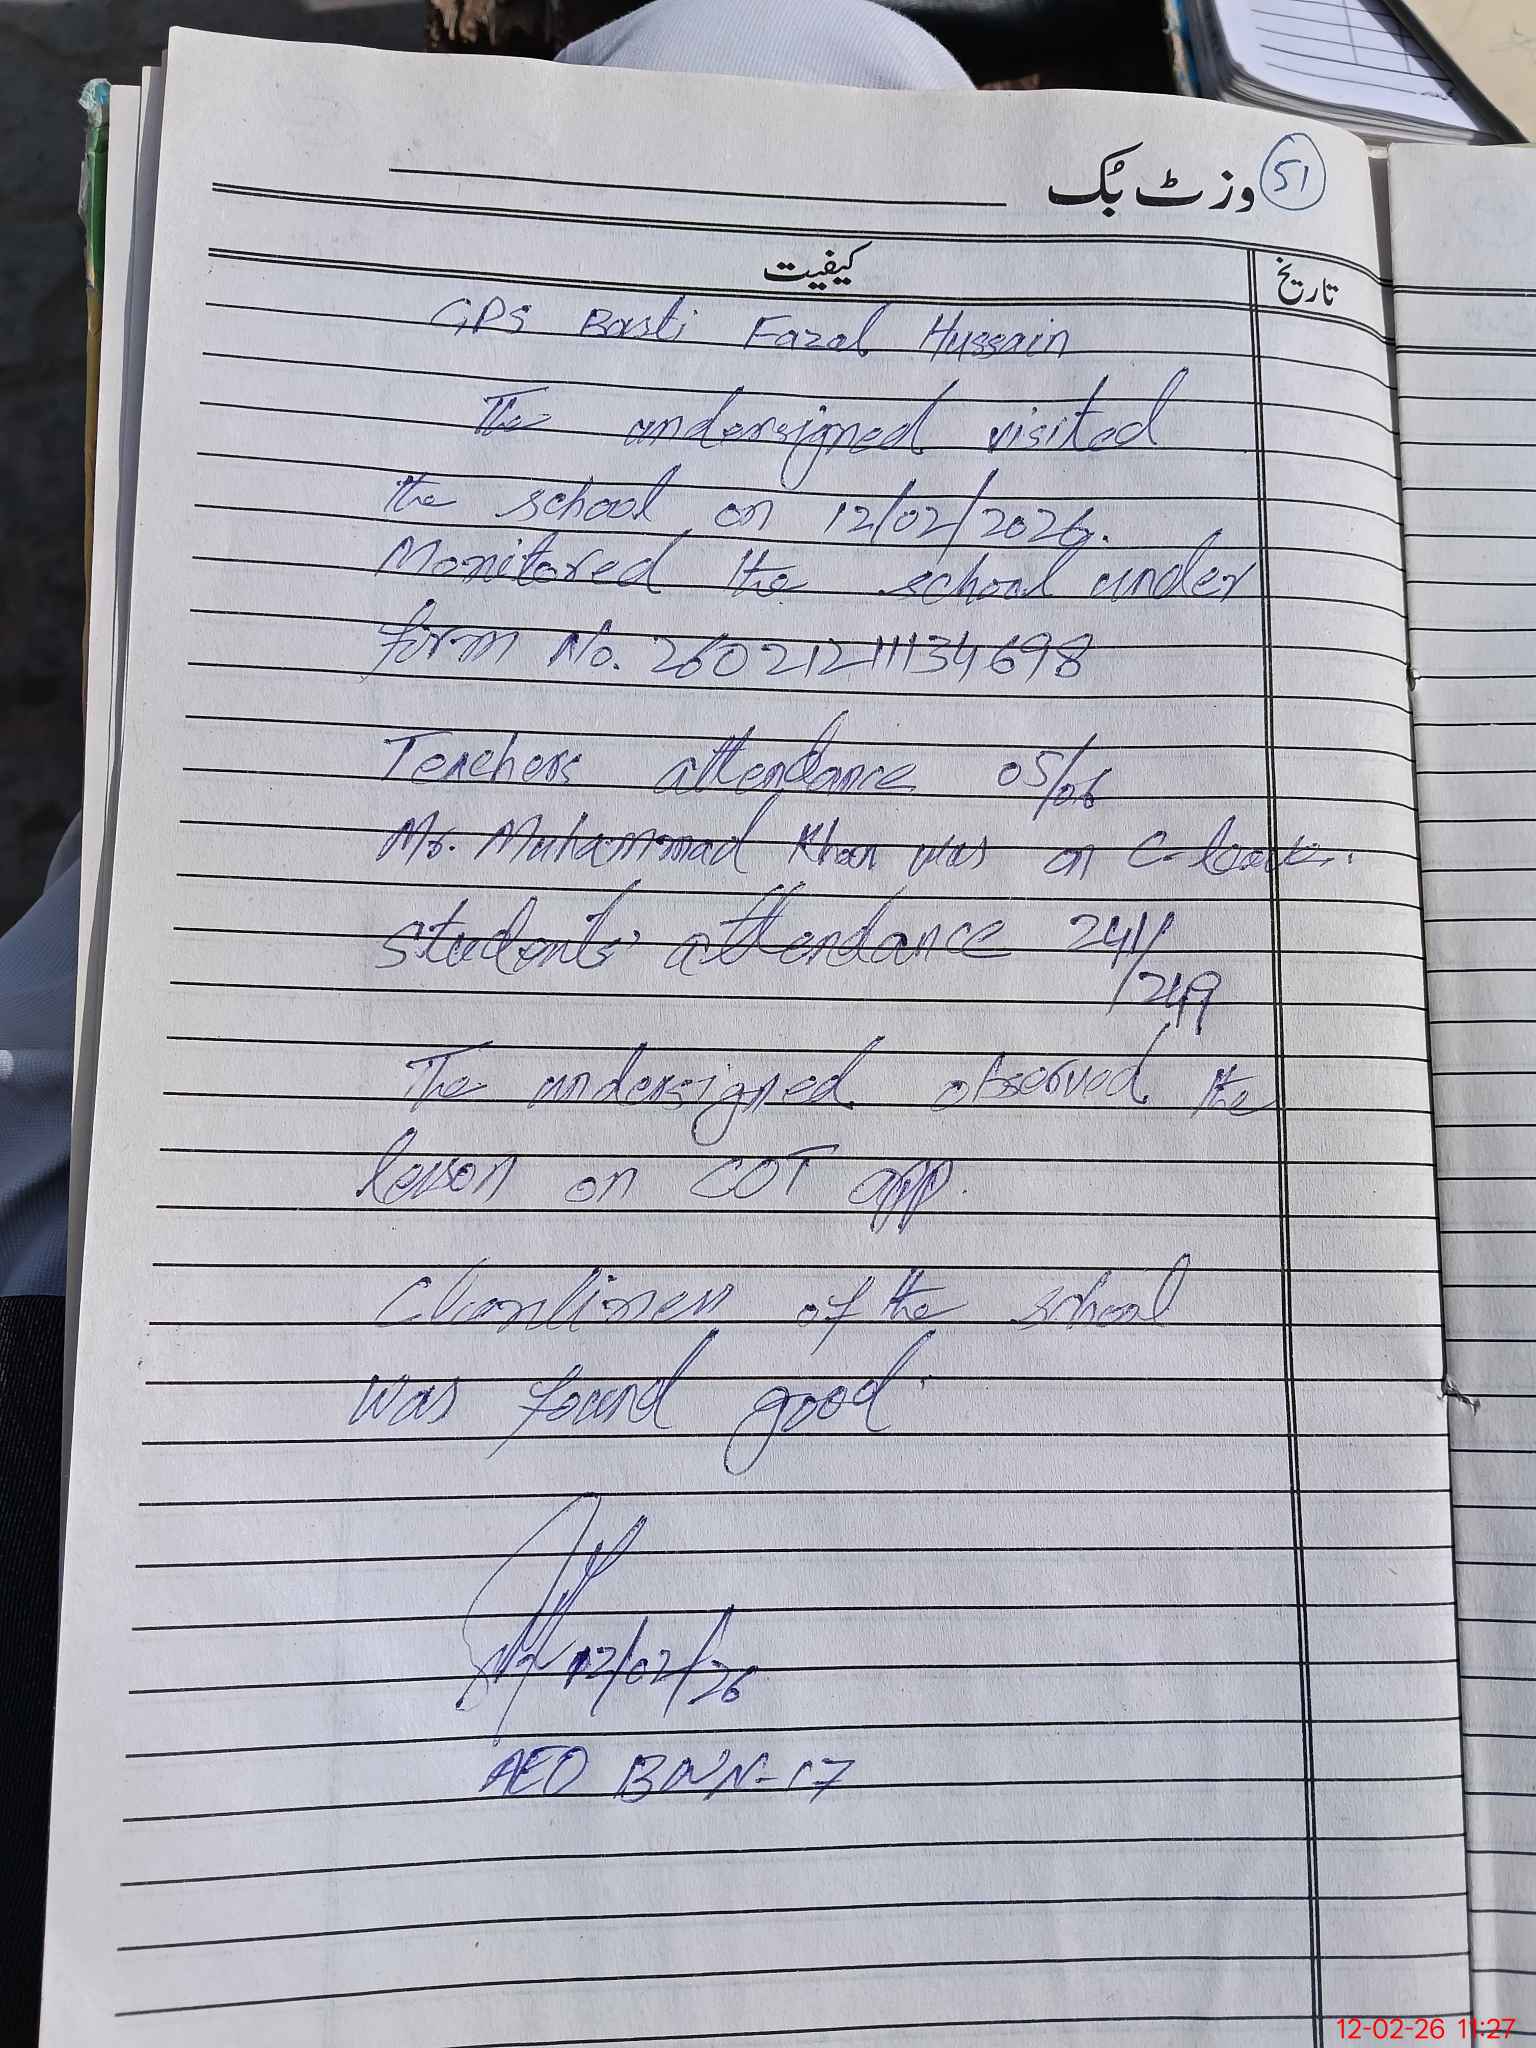 وزٹ بُک 51
کیفیت تاریخ
GPS Basti Fazal Hussain
The undersigned visited
the school on 12/02/2026.
Monitored the school under
form No. 26021211134698
Teachers attendance 05/06
Mr. Muhammad Khan was on C-leave.
students' attendance 241/
/249
The undersigned observed the
lesson on COT app.
Cleanliness of the school
was found good.
12/02/26
AEO BWN-17
12-02-26 11:27